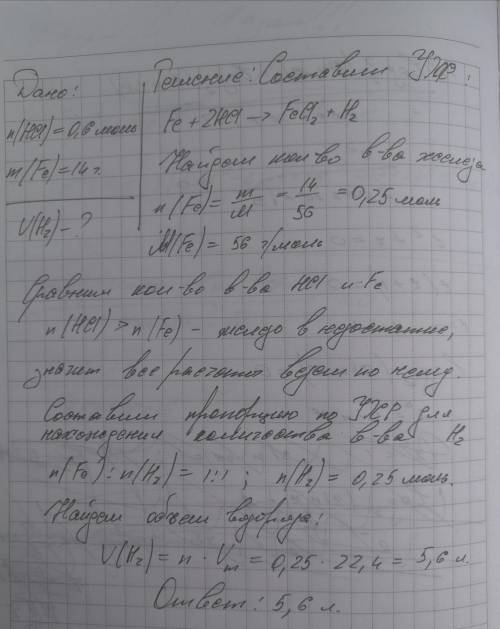 Дано:
n(HCl)=0,6 моль
m(Fe)=14 г.
V(H₂)-?
Решение: Составим УХР:
Fe + 2HCl → FeCl₂ + H₂
Найдем кол-во в-ва железа
n(Fe)= m/M = 14/56 = 0,25 моль
M(Fe)= 56 г/моль
Сравним кол-во в-ва HCl и Fe
n(HCl) > n(Fe) - железо в недостатке,
значит все расчеты ведем по нему.
Составим пропорцию по УХР для
нахождения количества в-ва H₂
n(Fe):n(H₂)=1:1; n(H₂)=0,25 моль.
Найдем объем водорода:
V(H₂)=n · Vm = 0,25 · 22,4 = 5,6 л.
Ответ: 5,6 л.